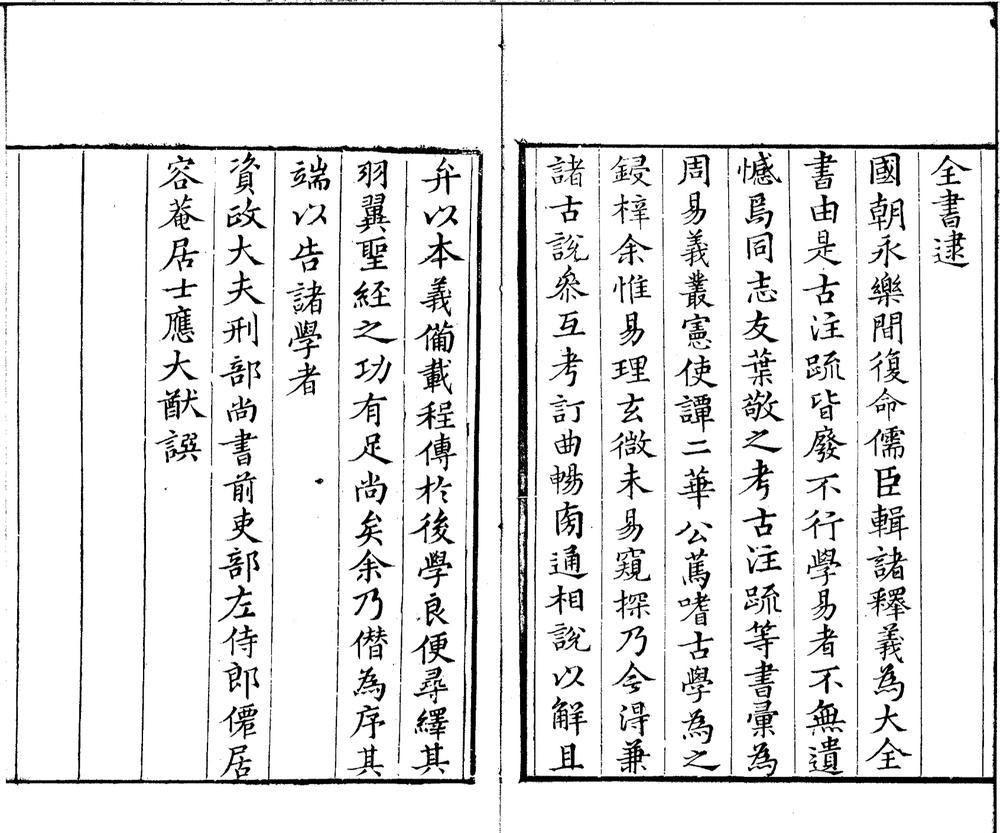 全書逮
國朝永樂間復命儒臣輯諸釋義為大全
書由是古注疏皆廢不行學易者不無遺
憾焉同志友葉敬之考古注疏等書彙為
周易義叢憲使譚二華公篤嗜古學為之
鋟梓余惟易理玄微未易窺探乃今得兼
諸古說叅互考訂曲暢旁通相說以解且
弁以本義備載程傳於後學良便尋繹其
羽翼聖經之功有足尚矣余乃僭為序其
端以告諸學者
資政大夫刑部尚書前吏部左侍郎僊居
容菴居士應大猷譔